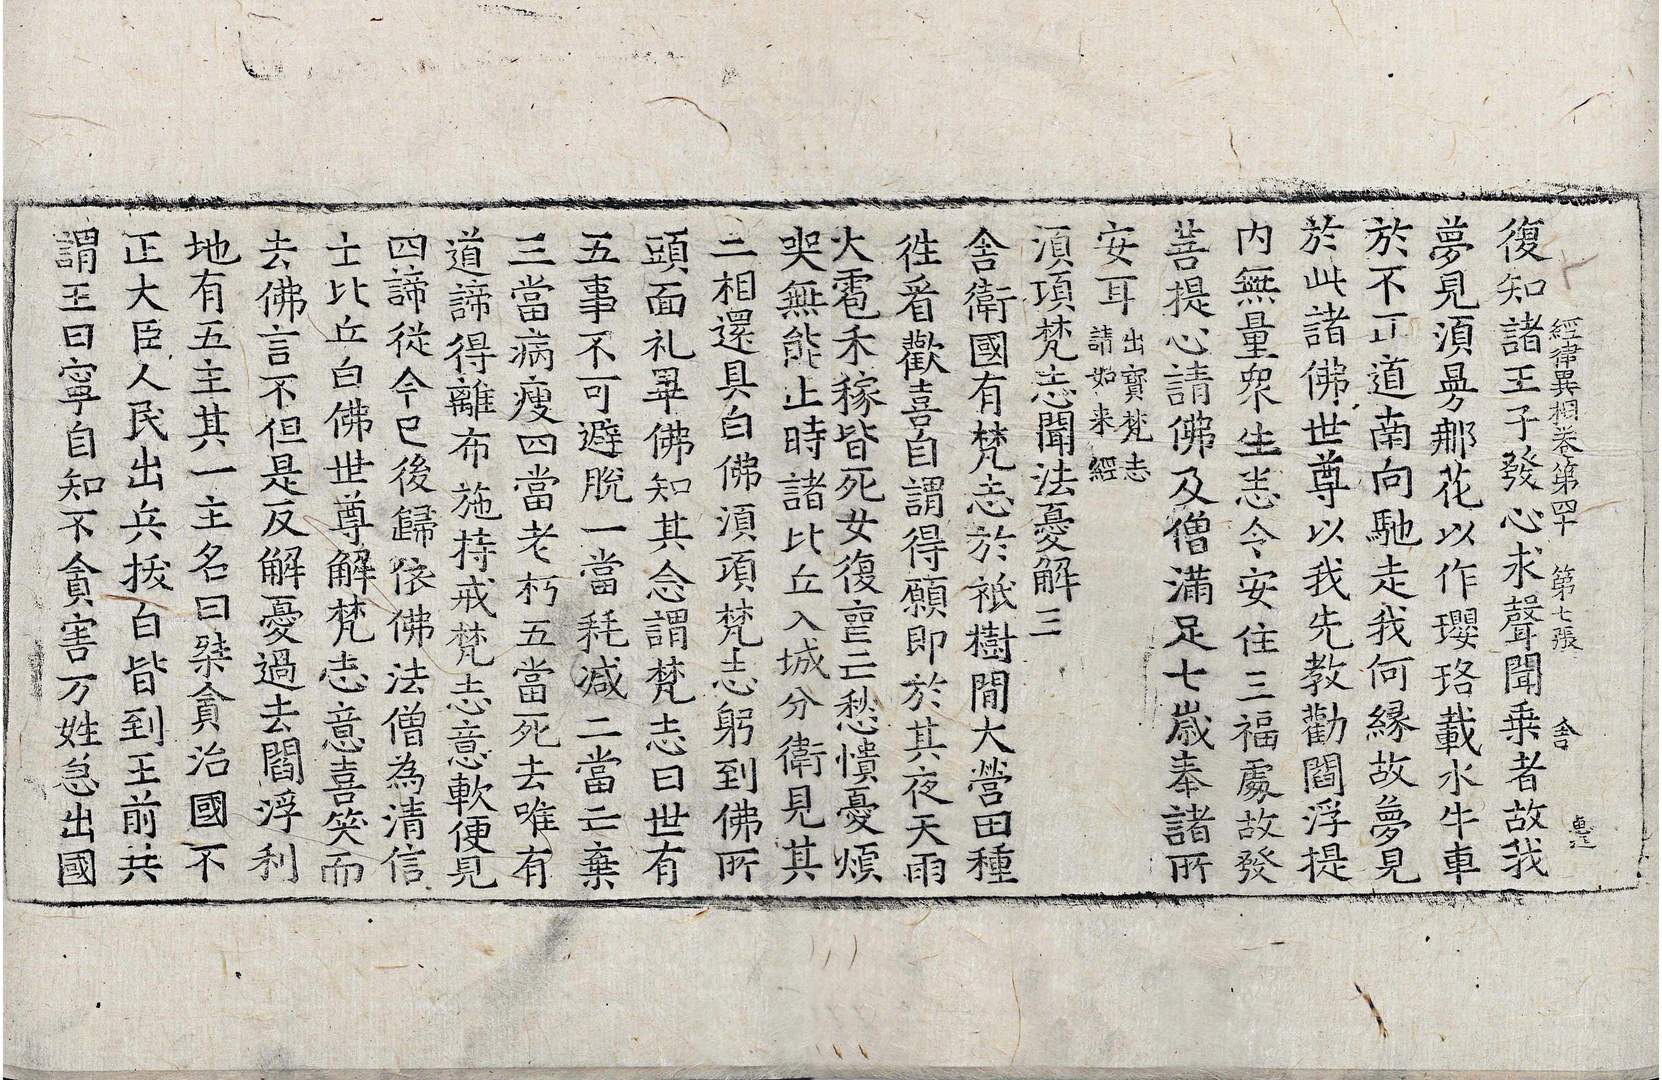 經律異相卷第四十　第七張　舍
復知諸王子發心求聲聞乗者故我
夢見湏曼那花以作瓔珞載水牛車
於不正道南向馳走我何縁故夢見
於此諸佛世尊以我先教勸閻浮提
内無量衆生恙令安住三福處故發
菩提心請佛及僧滿足七歳奉諸所
安耳出寳梵志請如来經
湏項梵志聞法憂解三
舍衛國有梵志於祇樹間大營田種
徃看歡喜自謂得願即於其夜天雨
大雹禾稼皆死女復亡愁憒憂煩
哭無能止時諸比丘入城分衛見其
二相還具白佛湏項梵志躬到佛所
頭面礼畢佛知其念謂梵志曰世有
五事不可避脫一當耗减二當亡棄
三當病瘦四當老朽五當死去唯有
道諦得離布施持戒梵志意軟便見
四諦從今已後歸依佛法僧為清信
士比丘白佛世尊解梵志意喜笑而
去佛言不但是反解憂過去閻浮利
地有五主其一主名曰桀貪治國不
正大臣人民出兵拔白皆到王前共
謂王曰寧自知不貪害万姓急出國